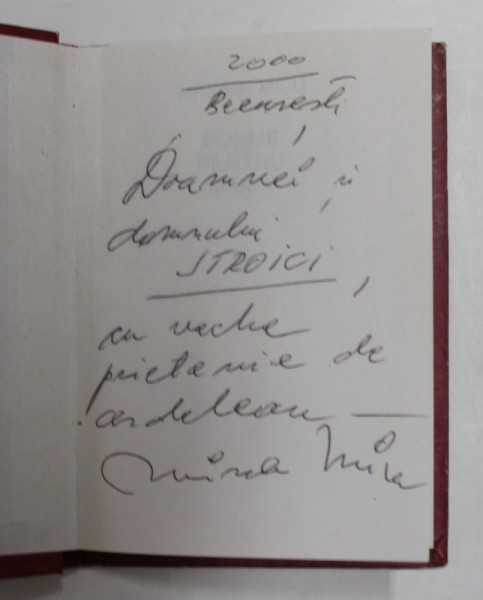 2000
București
Doamnei și
domnului
STROICI,
cu veche
prietenie de
ardelean —